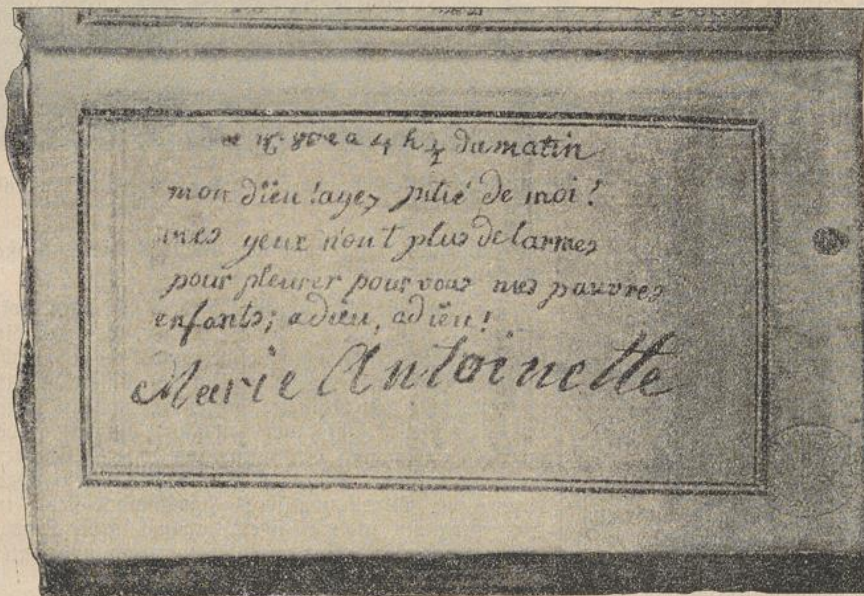 a 4 h ½ du matin
mon dieu ! ayez pitié de moi !
mes yeux n'ont plus de larmes
pour pleurer pour vous mes pauvres
enfants; adieu, adieu !
Marie Antoinette